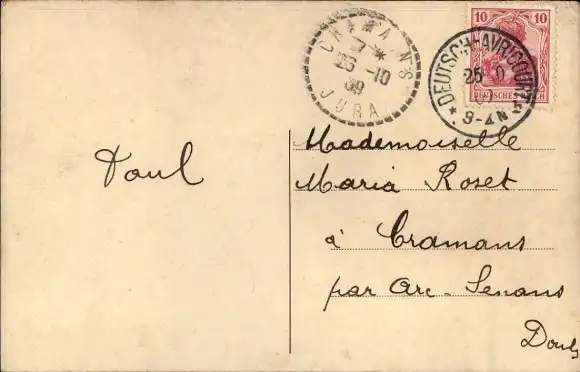 10 10
DEUTSCHES REICH
DEUTSCH-AVRICOURT
25 10
CRAMANS
26 -10
09
JURA
Paul
Mademoiselle
Maria Roset
à Cramans
par Arc-Senans
Doubs